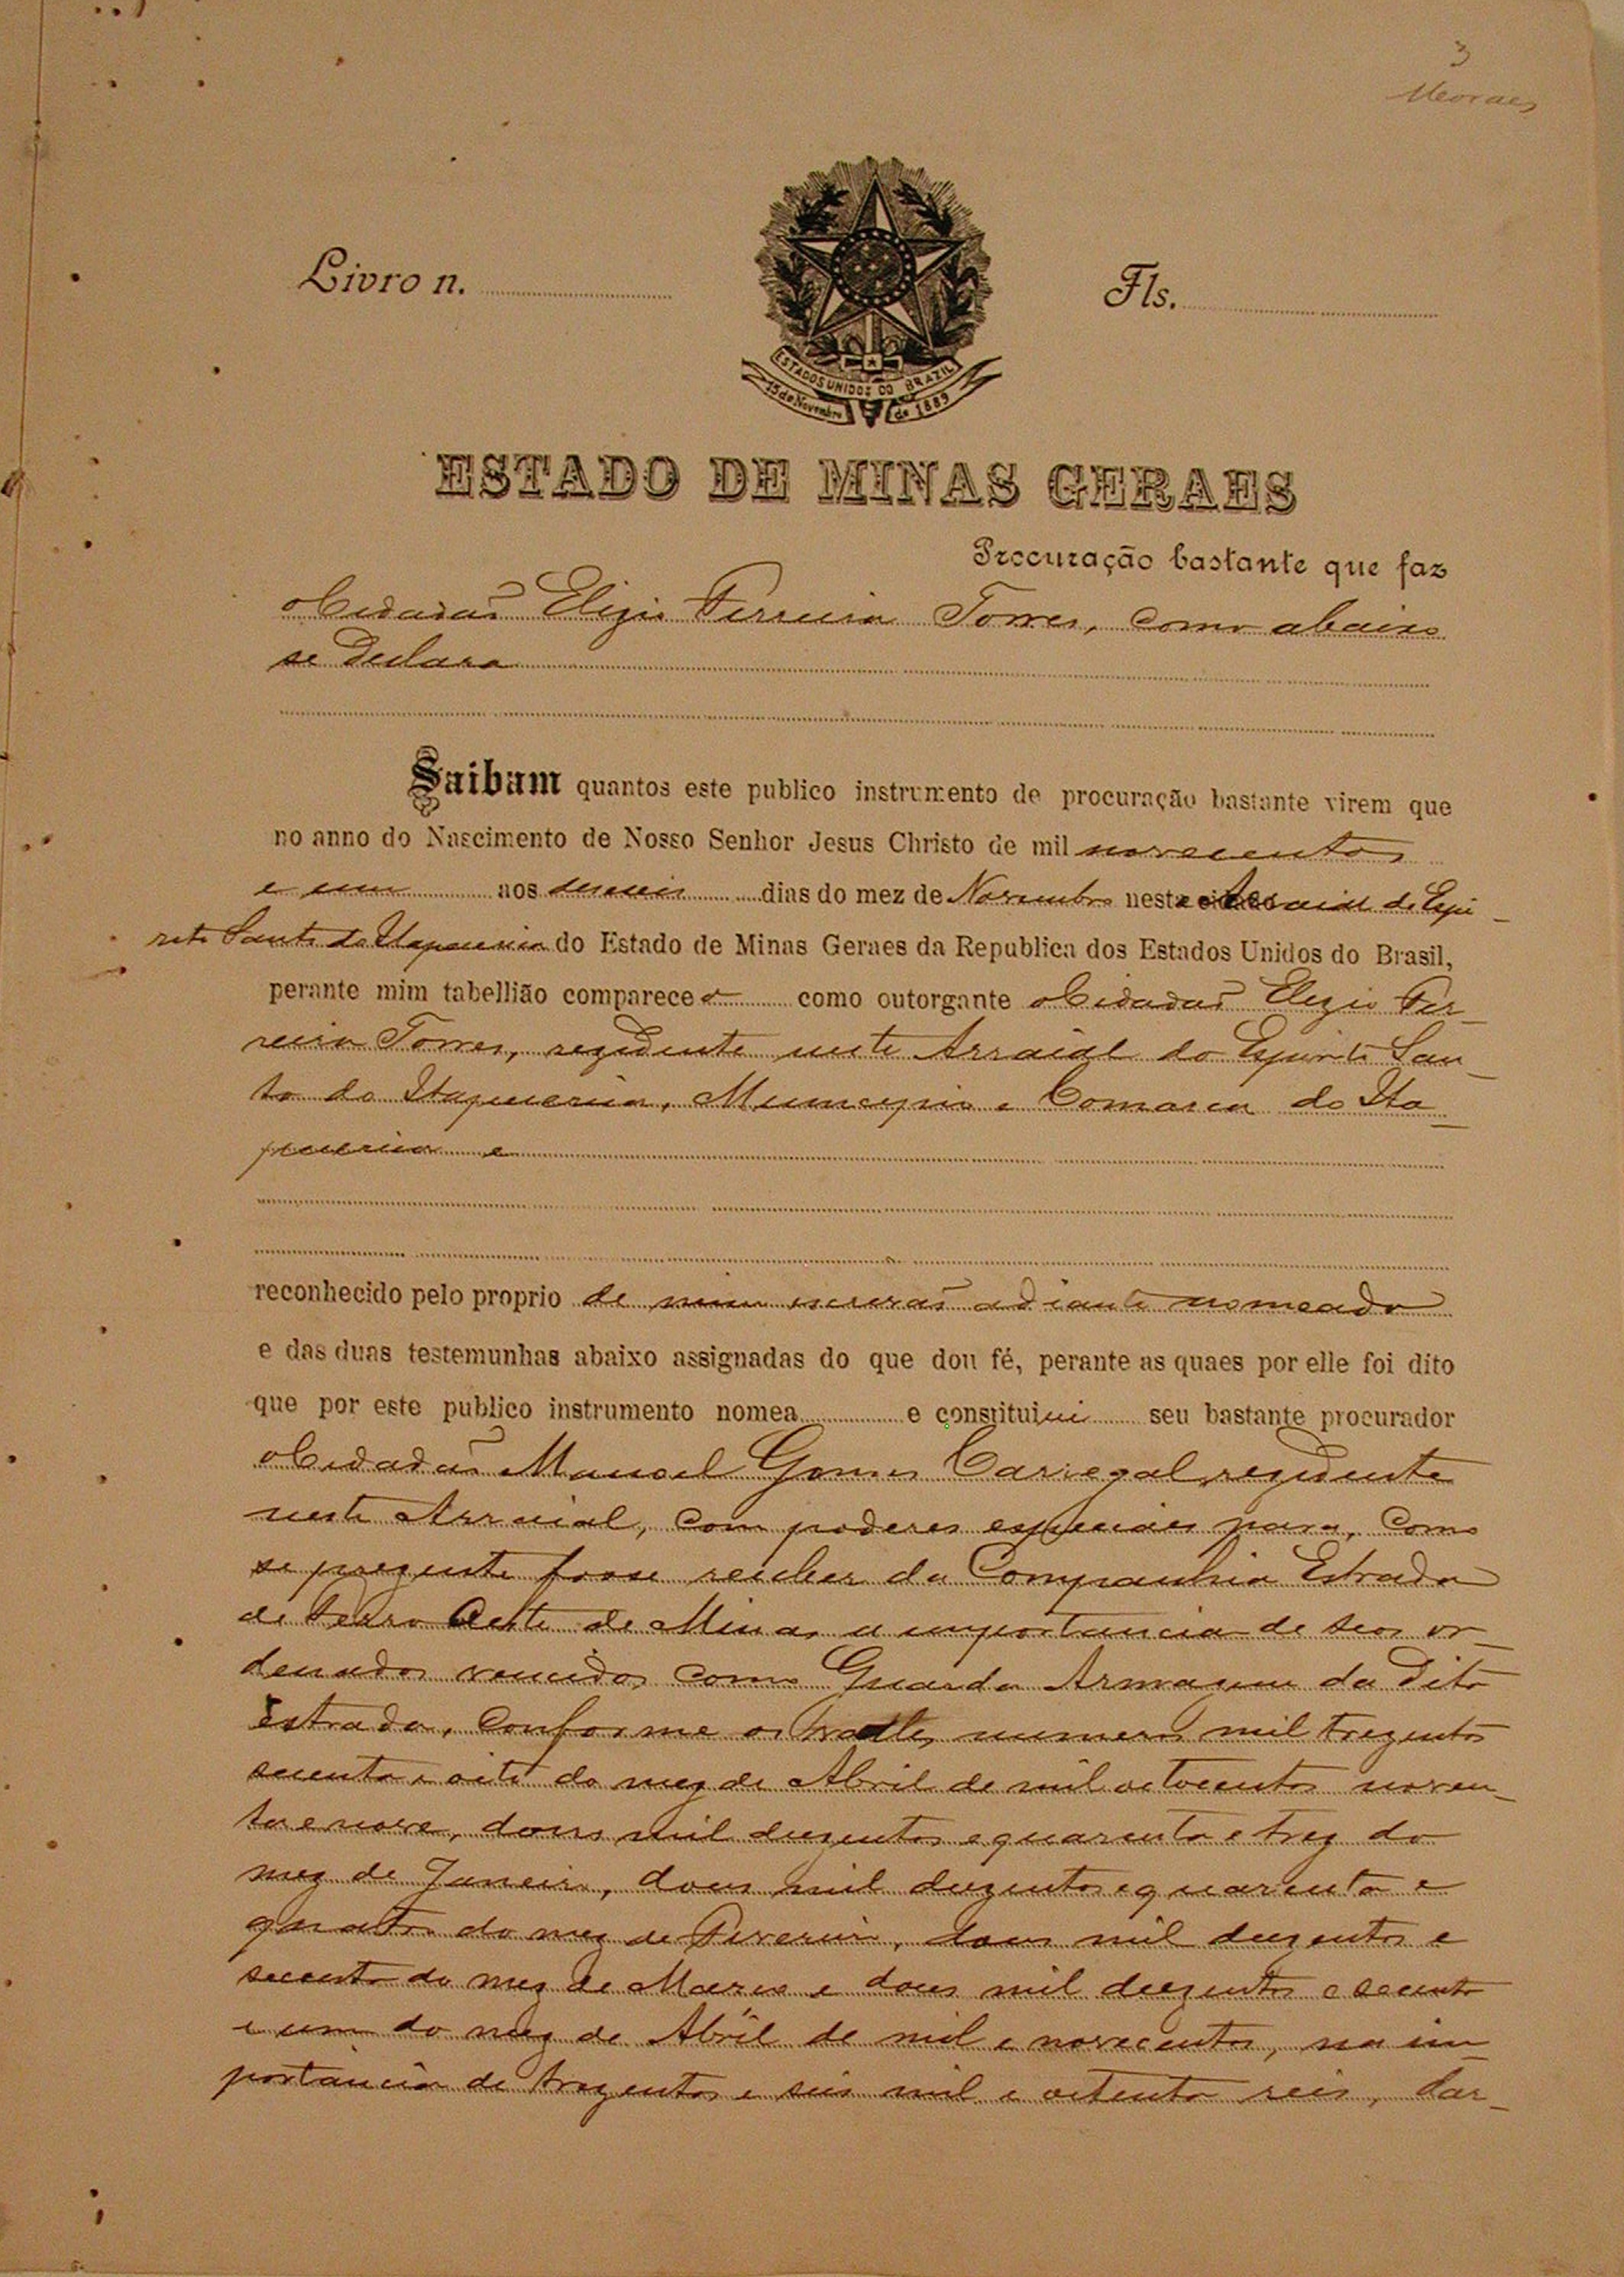 3
Moraes
Livro n.
Fls.
ESTADOS UNIDOS DO BRAZIL
15 de Novembro de 1889
ESTADO DE MINAS GERAES
Procuração bastante que faz
o Cidadaõ Elizio Ferreira Torres, como abaixo
se declara
Saibam quantos este publico instrumento de procuração bastante virem que
no anno do Nascimento de Nosso Senhor Jesus Christo de mil novecentos
e um aos dias do mez de Novembro neste Arraial do Espi
rito Santo do Itapecerica do Estado de Minas Geraes da Republica dos Estados Unidos do Brasil,
perante mim tabellião comparece o como outorgante o Cidadaõ Elizio Fer
reira Torres, rezidente neste Arraial do Espirito San
to do Itapecerica, Municipio e Comarca do Ita
pecerica e
reconhecido pelo proprio de mim escrivaõ adiante nomeado
e das duas testemunhas abaixo assignadas do que dou fé, perante as quaes por elle foi dito
que por este publico instrumento nomea e constitui seu bastante procurador
o Cidadaõ Manoel Gomes Carregal, rezidente
neste Arraial, com poderes especiaes para, como
se prezente fosse receber da Companhia Estrada
de Ferro Oeste de Minas a importancia de seos or
denados vencidos como Guarda Armazem da dita
Estrada, Conforme os numeros mil trezentos
secenta e oito do mez de Abril de mil oitocentos noven
ta e nove, dous mil duzentos e quarenta e trez do
mez de Janeiro, dous mil duzentos e quarenta e
quatro do mez de Fevereiro, dous mil duzentos e
secenta do mez de Março e dous mil duzentos e secenta
e um do mez de Abril de mil e novecentos, na im
portancia de trezentos e seis mil e oitenta reis, dar